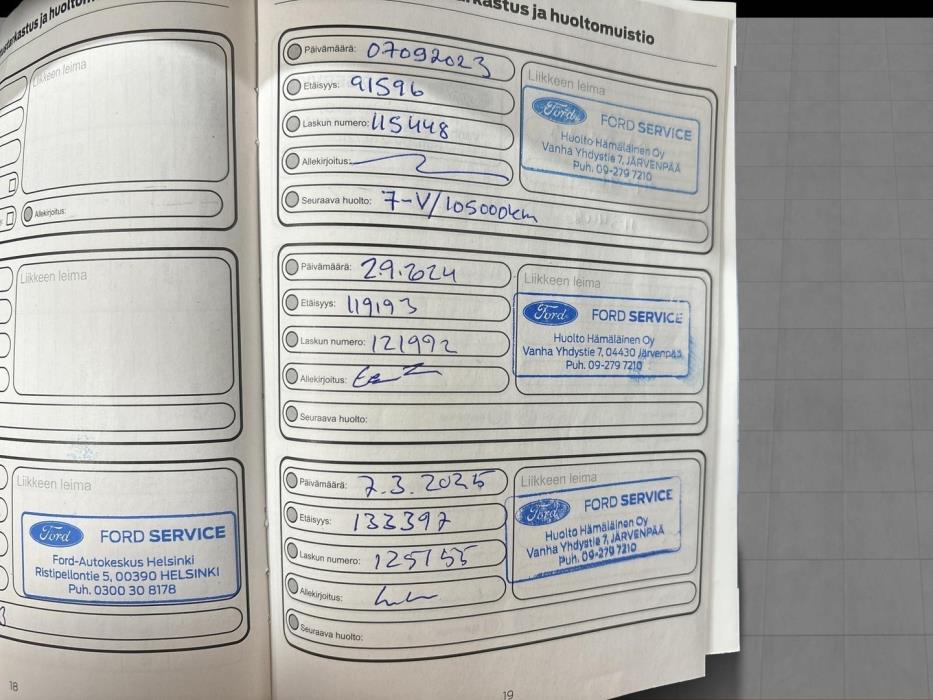 Liikkeen leima
Allekirjoitus:
Liikkeen leima
Liikkeen leima
Ford FORD SERVICE
Ford-Autokeskus Helsinki
Ristipellontie 5, 00390 HELSINKI
Puh. 0300 30 8178
18
ja huoltomuistio
Päivämäärä: 07092023
Etäisyys: 91596
Laskun numero: 115448
Allekirjoitus:
Seuraava huolto: 7-V/105000km
Liikkeen leima
Ford FORD SERVICE
Huolto Hämäläinen Oy
Vanha Yhdystie 7, JÄRVENPÄÄ
Puh. 09-279 7210
Päivämäärä: 2.9.2024
Etäisyys: 119193
Laskun numero: 121992
Allekirjoitus:
Seuraava huolto:
Liikkeen leima
Ford FORD SERVICE
Huolto Hämäläinen Oy
Vanha Yhdystie 7, 04430 Järvenpää
Puh. 09-279 7210
Päivämäärä: 7.3.2025
Etäisyys: 133397
Laskun numero: 125155
Allekirjoitus:
Seuraava huolto:
Liikkeen leima
Ford FORD SERVICE
Huolto Hämäläinen Oy
Vanha Yhdystie 7, JÄRVENPÄÄ
Puh. 09-279 7210
19